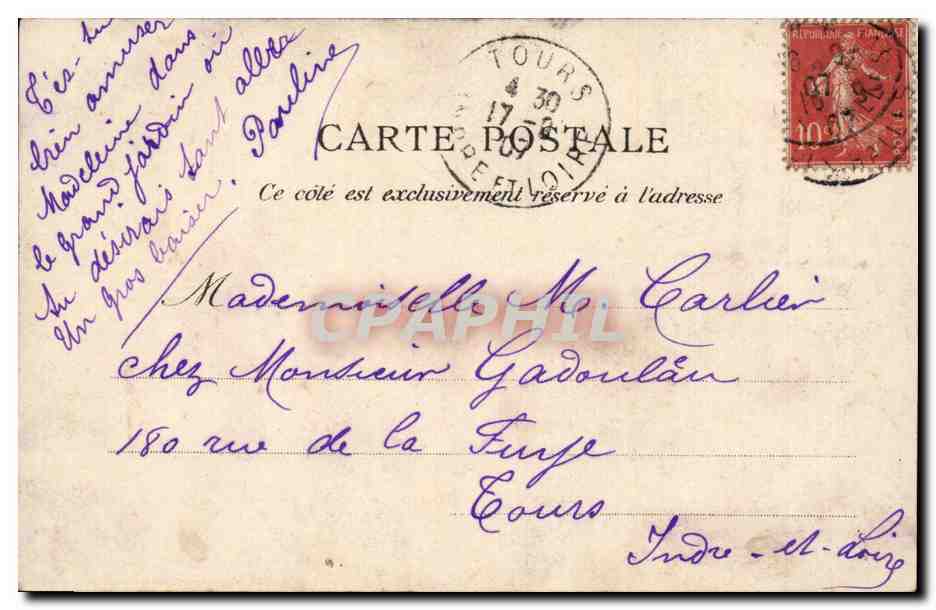 T'es-tu
bien amuser
Madeleine dans
le grand jardin où
tu désirais tant aller
Un gros baiser.
Pauline
TOURS
4 30
17 -8
07
INDRE ET LOIRE
REPUBLIQUE FRANÇAISE
10
CARTE POSTALE
Ce côté est exclusivement réservé à l'adresse
Mademoiselle M. Carlier
CPAPHIL
chez Monsieur Gadoulân
180 rue de la Fuye
Tours
Indre-et-Loire